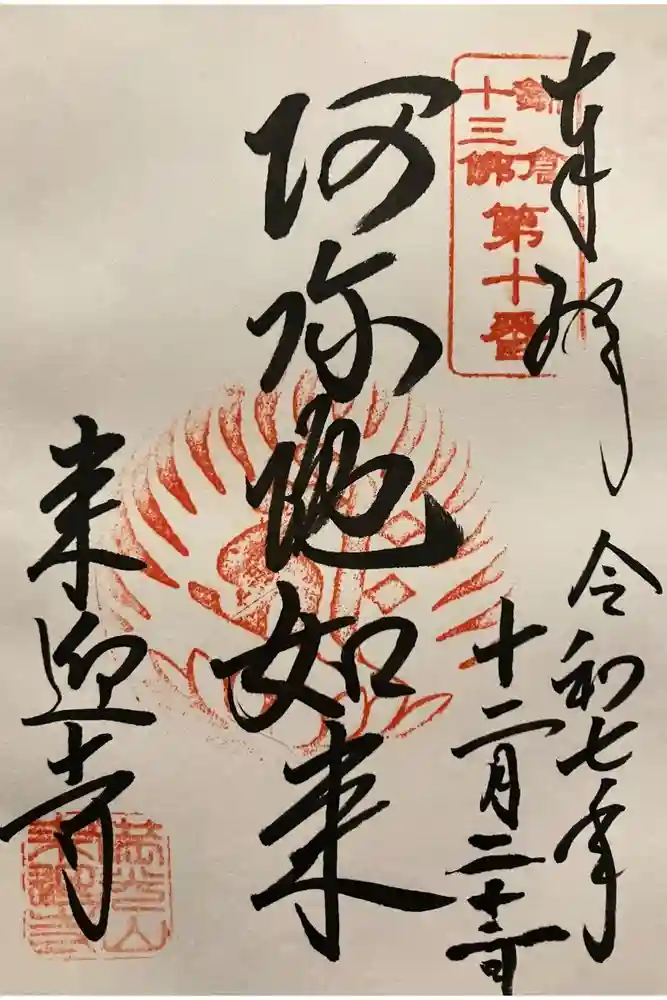 奉拝
鎌倉
十三佛
第十番
令和七年
十二月二十
阿弥陀如来
来迎寺
光山
來迎寺